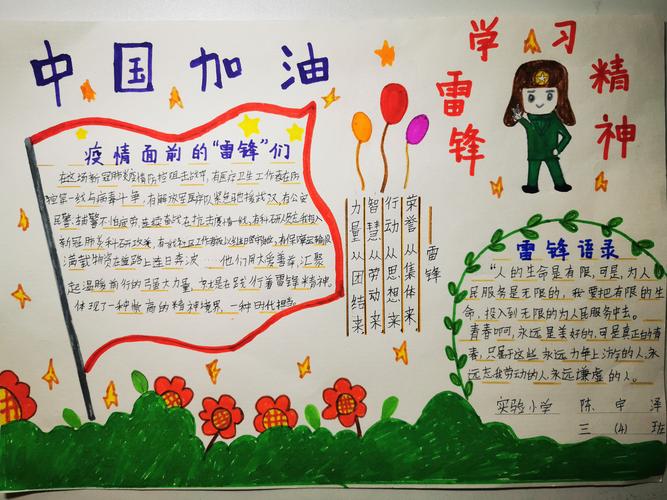 中国加油
学习
雷锋
精神
疫情面前的“雷锋”们
在这场新冠肺炎疫情防控阻击战中,有医疗卫生工作者在防
控第一线与病毒斗争,有解放军医疗队紧急驰援武汉,有公安
民警、辅警不怕疲劳、连续奋战
新冠肺炎科研攻关,
满载物资在道路上连日奔波……他们用大爱善意,汇聚
起温暖前行的强大力量,
体现了一种崇高的精神境界,一种时代担当。
荣誉从集体来
行动从思想来
智慧从劳动来
力量从团结来
雷锋
雷锋语录
“人的生命是有限,可是,为人
民服务是无限的,我要把有限的生
命,投入到无限的为人民服务中去。
青春啊,永远是美好的,可是真正的青
春,只属于这些永远力争上游的人,永
远忘我劳动的人,永远谦虚的人。
实验小学 陈宇泽
三(4)班